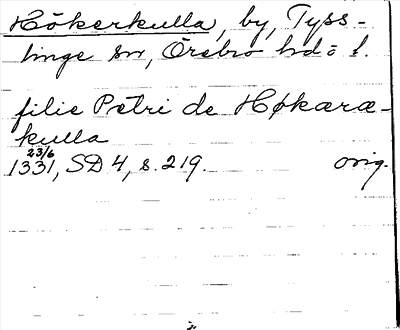 Hökerkulla, by, Tyss-
linge sn, Örebro hd o l.
filie Pætri de Høkaræ-
kulla
23/6
1331, SD 4, s. 219. orig.